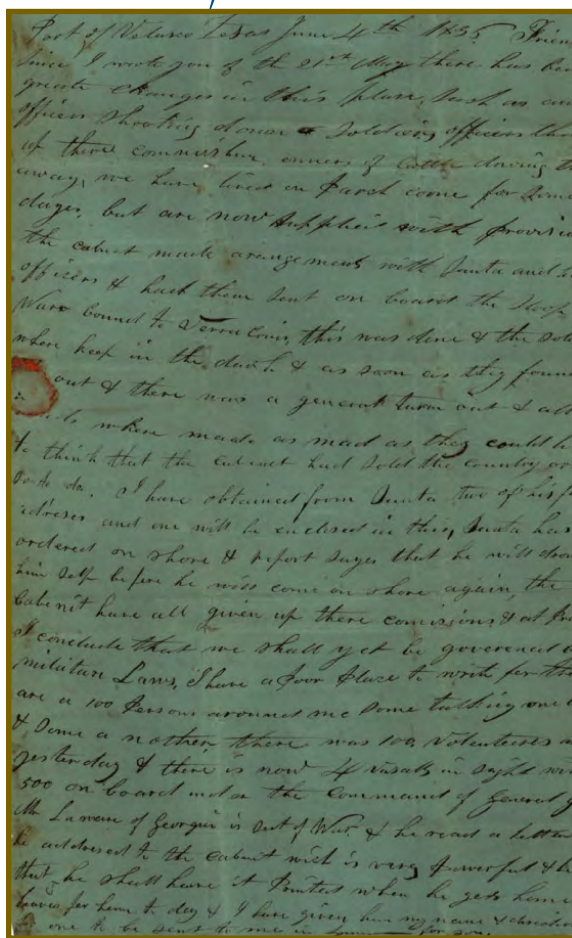 Port of Velasco Texas June 4th 1835 Friend
Since I wrote you of the 21st May there has
greate changes in this plase, Such as
officers Shooting down Soldiers, officers
up there commishen, owners of Cattle driving
away, we have lived on Parsh corne for Some
dayes, but are now Supplied with provisio
the cabnet made arangements with Santa and
officers & had them Sent on board the Sloop
Warr bound to Verra Cruis, this was done & the Sol
where keep in the dark & as soon as they foun
out & there was a general turn out & all
where made as mad as they could
to think that the cabnet had Sold the Country
I have obtained from Santa two of his
adreses and one will be enclosed in this, Santa has
ordered on Shore & report Sayes that he will
him Self before he will come on Shore again, the
Cabinit have all given up there comissions, & at
I conclude that we shall yet be governed
militan Laws, I have a Poor Place to write for
are a 100 Persons around me Some talking one
& Some a nother there was 100 Volunteeres
yesterday & there is now 4 Vasals in Sight
500 on board under the Command of General
Mr Lamare of Georgia is Sect of War & he read a letter
he addresed to the cabnet wich is very Powerful &
that he shall have it Printed when he gets home
leaves for home to day & I have given him my name &
one to be sent to me in for you.